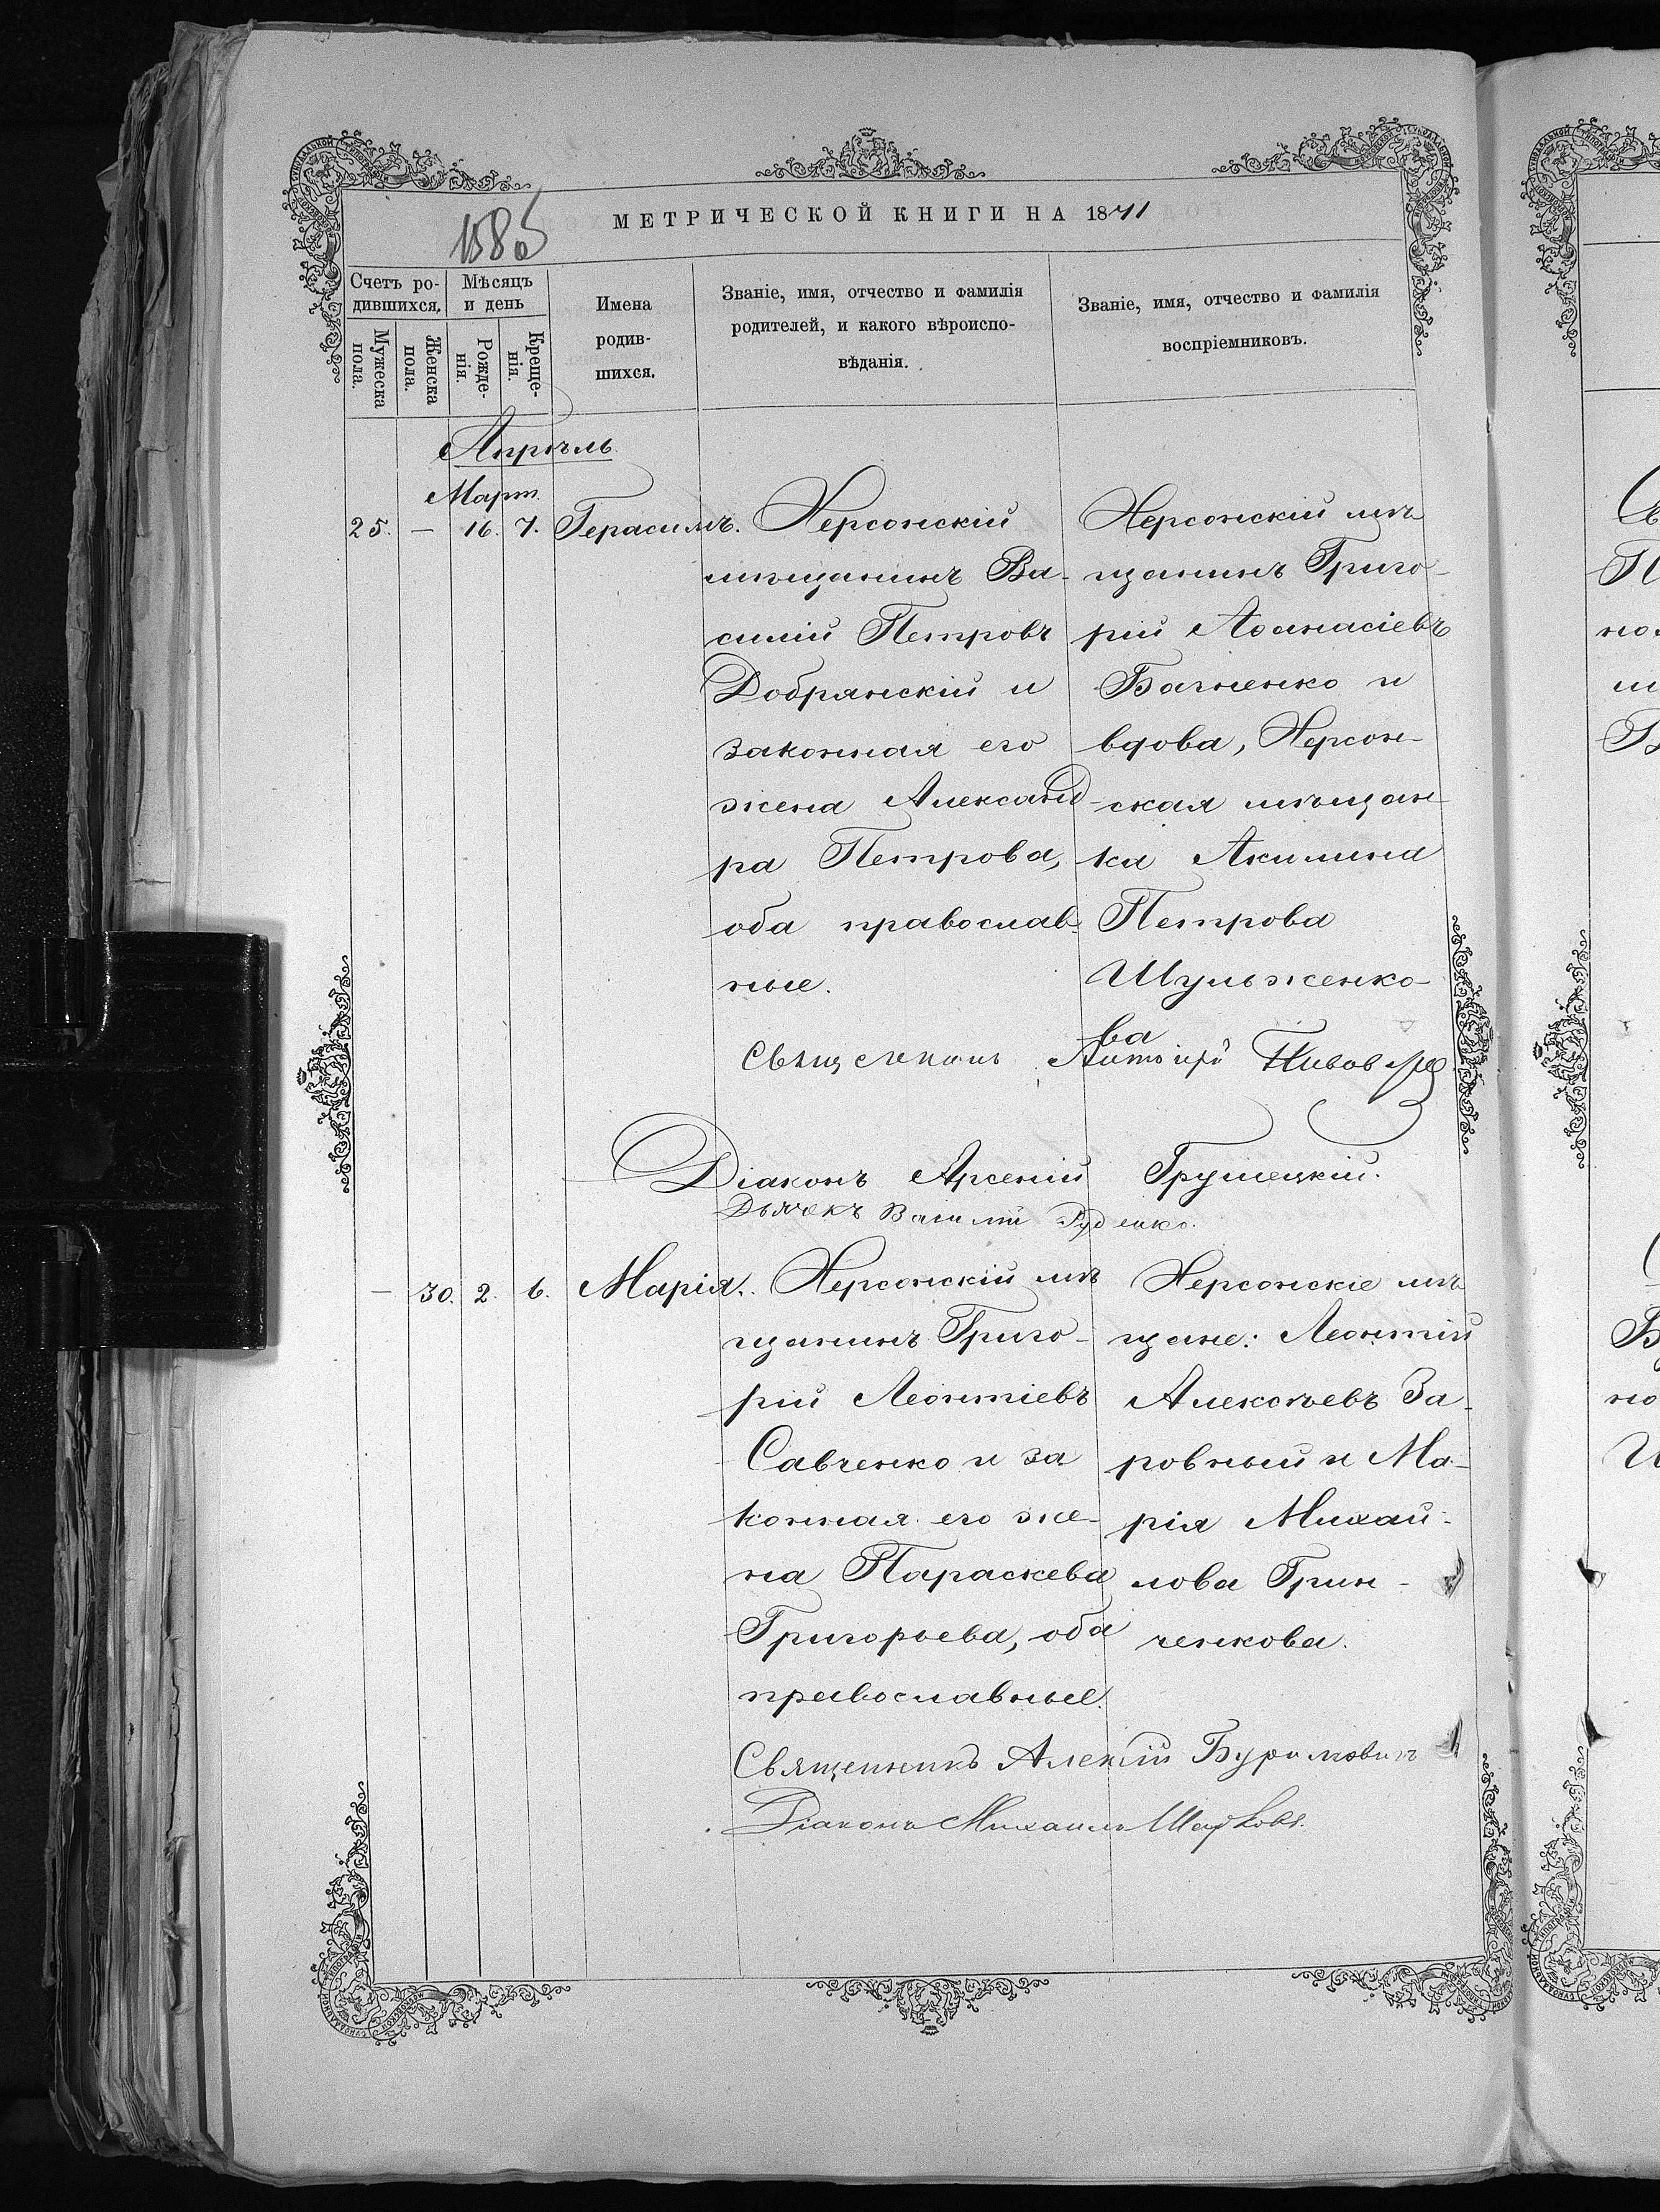 1585
МЕТРИЧЕСКОЙ КНИГИ НА 1871
Счетъ ро-
дившихся.
Мѣсяцъ
и день
Мужеска
пола.
Женска
пола.
Рожде-
нія.
Креще-
нія.
Имена
родив-
шихся.
Званіе, имя, отчество и фамилія
родителей, и какого вѣроиспо-
вѣданія.
Званіе, имя, отчество и фамилія
воспріемниковъ.
Апрѣль
Март.
25. — 16. 7. Герасимъ.
Херсонскій
мѣщанинъ Ва-
силій Петровъ
Добрянскій и
законная его
жена Александ
ра Петрова,
оба православ-
ные.
Херсонскій мѣ
щанинъ Григо-
рій Аѳанасіевъ
Багненко и
вдова, Херсон-
ская мѣщан-
ка Акилина
Петрова
Шульженко-
ва
Священникъ Антоній
Діаконъ Арсеній Грушецкій.
Дьячекъ Василій Руденко.
— 30. 2. 6. Марія.
Херсонскій мѣ
щанинъ Григо-
рій Леонтіевъ
Савченко и за
конная его же-
на Параскева
Григорьева, оба
православные.
Херсонскіе мѣ
щане: Леонтій
Алексѣевъ За-
ровный и Ма-
рія Михай-
лова Грин-
ченкова.
Священникъ Алексій Буримовичъ
Діаконъ Михаилъ